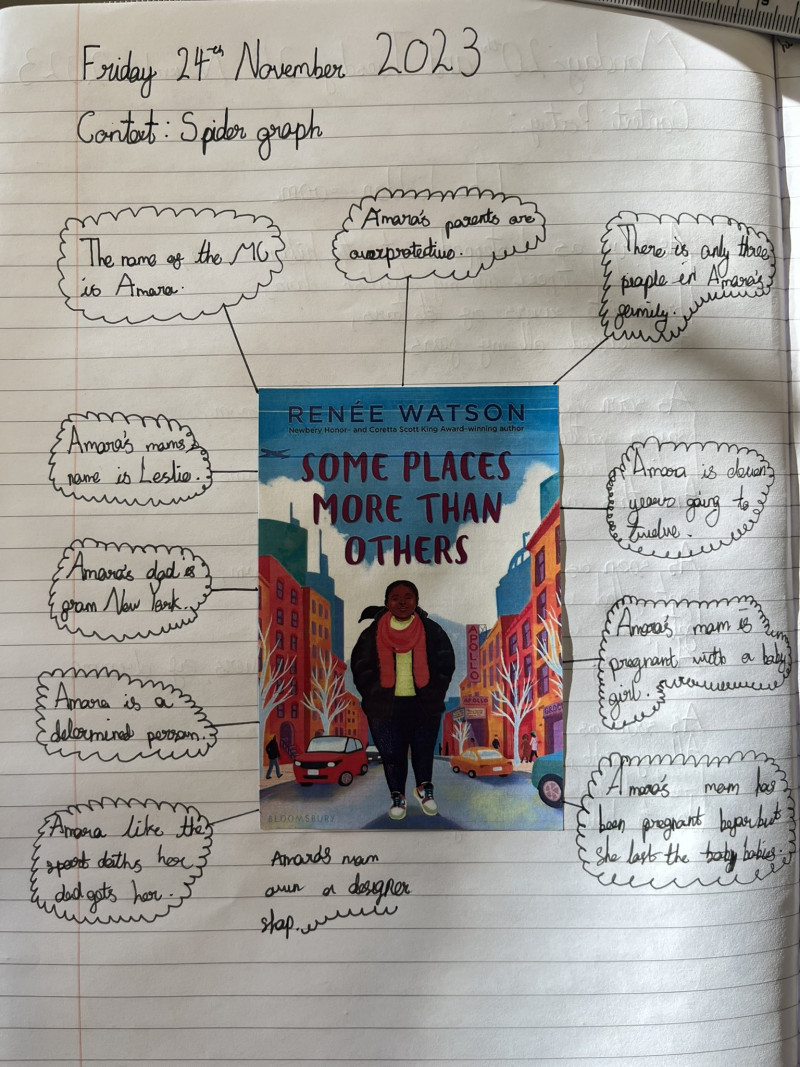 Friday 24th November 2023
Context: Spider graph
The name of the MC
is Amara.
Amara's parents are
overprotective.
There is only three
people in Amara's
family.
Amara's mams
name is Leslie.
Amara's dad is
from New York.
Amara is a
determined person.
Amara like the
sport cloths her
dad gets her.
RENÉE WATSON
Newbery Honor- and Coretta Scott King Award-winning author
SOME PLACES
MORE THAN
OTHERS
APOLLO
APOLLO
BLOOMSBURY
Amara's mam
own a designer
shop.
Amara is eleven
years going to
twelve.
Amara's mam is
pregnant with a baby
girl.
Amara's mam has
been pregnant before but
she lost the baby babies.